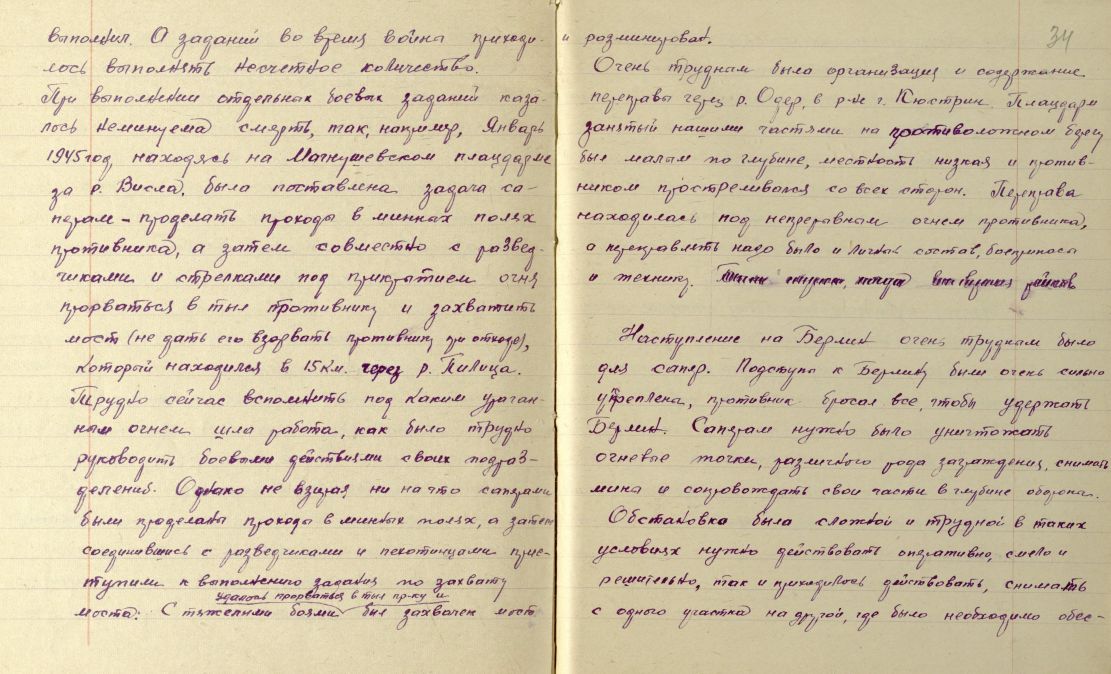 выполнил. А заданий во время война приходи-
лось выполнять несчетное количество.
При выполнении отдельных боевых заданий каза-
лось неминуема смерть, так, например, Январь
1945 год, находясь на Магнушевском плацдарме
за р. Висла, была поставлена задача са-
перам – проделать проходы в минных полях
противника, а затем совместно с развед-
чиками и стрелками под прикрытием огня
прорваться в тыл противнику и захватить
мост (не дать его взорвать противнику при отходе),
который находился в 15 км. через р. Пилица.
Трудно сейчас вспомнить под каким ураган-
ным огнем шла работа, как было трудно
руководить боевыми действиями своих подраз-
деления. Однако не взирая ни на что саперами
были проделаны проходы в минных полях, а затем
соединившись с разведчиками и пехотинцами прис-
тупили к выполнению задания по захвату
удалось прорваться в тыл пр-ку и
моста. С тяжелыми боями был захвачен мост
и разминирован.
34
Очень трудным была организация и содержание
переправы через р. Одер, в р-не г. Кюстрин. Плацдарм
занятый нашими частями на противоположном берегу
был малым по глубине, местность низкая и против-
ником простреливался со всех сторон. Переправа
находилась под непрерывным огнем противника,
а переправлять надо было и личный состав, боеприпасы
и технику.
Наступление на Берлин очень трудным было
для сапер. Подступы к Берлину были очень сильно
укреплены, противник бросал все, чтобы удержать
Берлин. Саперам нужно было уничтожать
огневые точки, различного рода заграждения, снимать
мины и сопровождать свои части в глубине обороны.
Обстановка была сложной и трудной в таких
условиях нужно действовать оперативно, смело и
решительно, так и приходилось действовать, снимать
с одного участка на другой, где было необходимо обес-